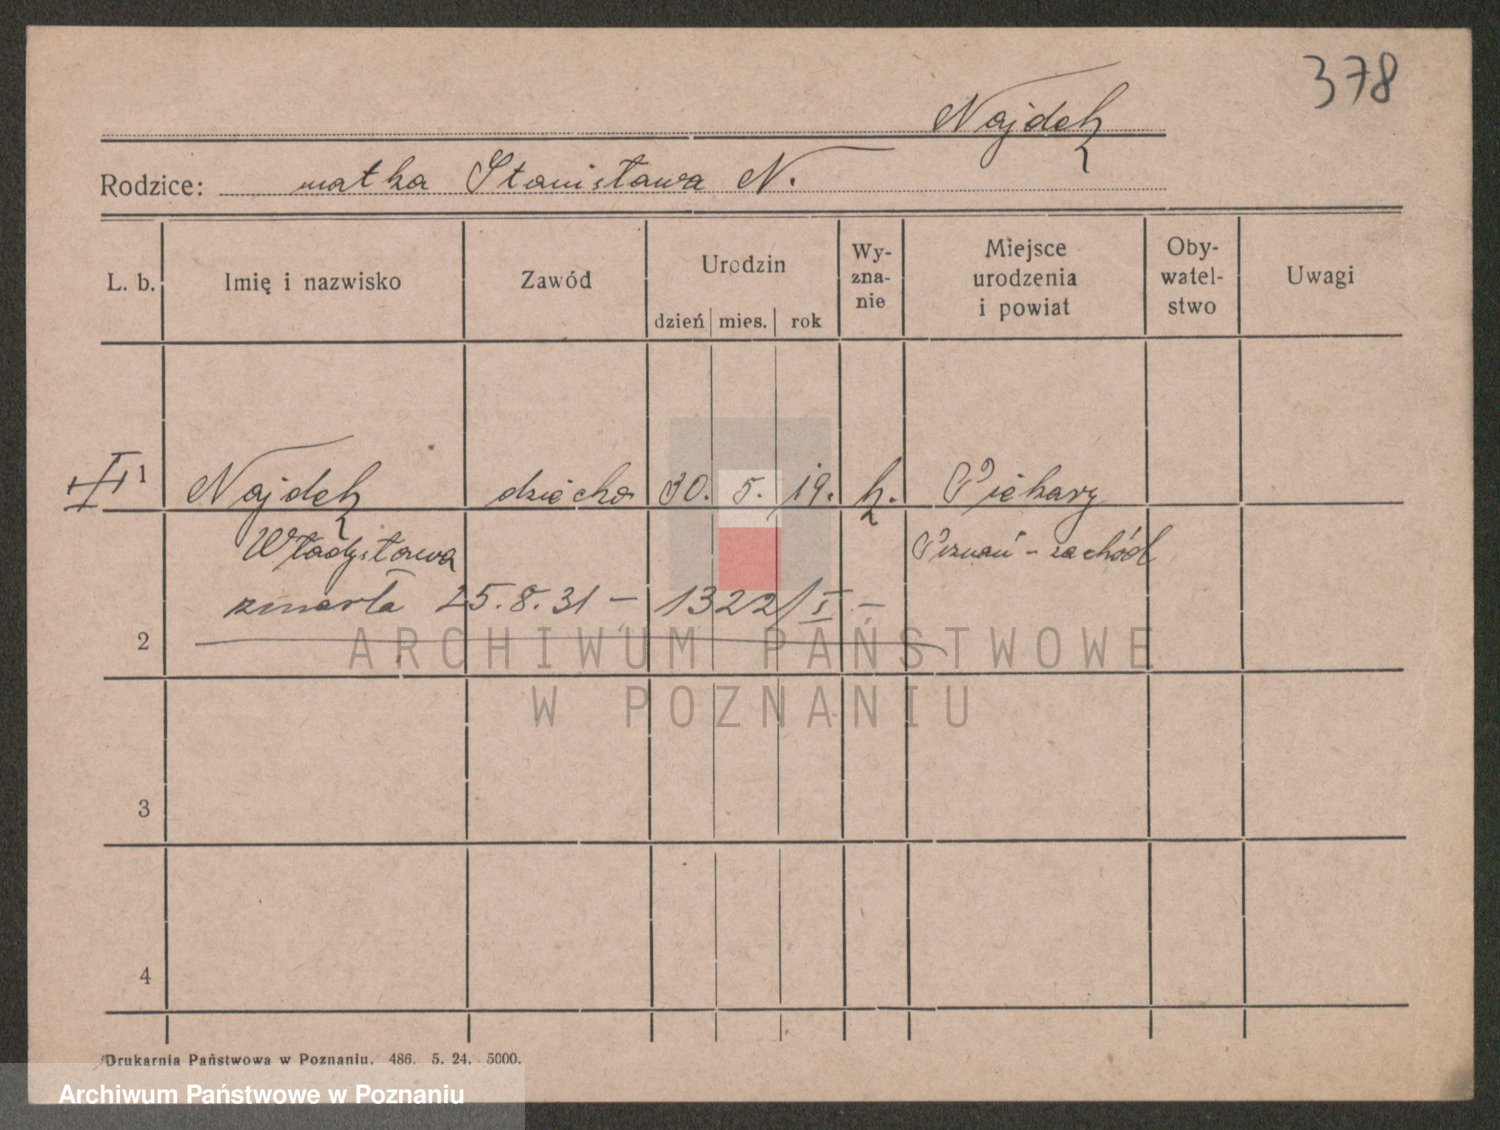 378
Najdek
Rodzice: matka Stanisława N.
L. b. Imię i nazwisko Zawód Urodzin Wy-zna-nie Miejsce urodzenia i powiat Oby-watel-stwo Uwagi
dzień mies. rok
1 Najdek dziecko 30. 5. 19. k. Piekary
Władysława Poznań - zachód
zmarła 25.8.31 - 1322/I -
2
ARCHIWUM PAŃSTWOWE
W POZNANIU
3
4
Drukarnia Państwowa w Poznaniu. 486. 5. 24. 5000.
Archiwum Państwowe w Poznaniu